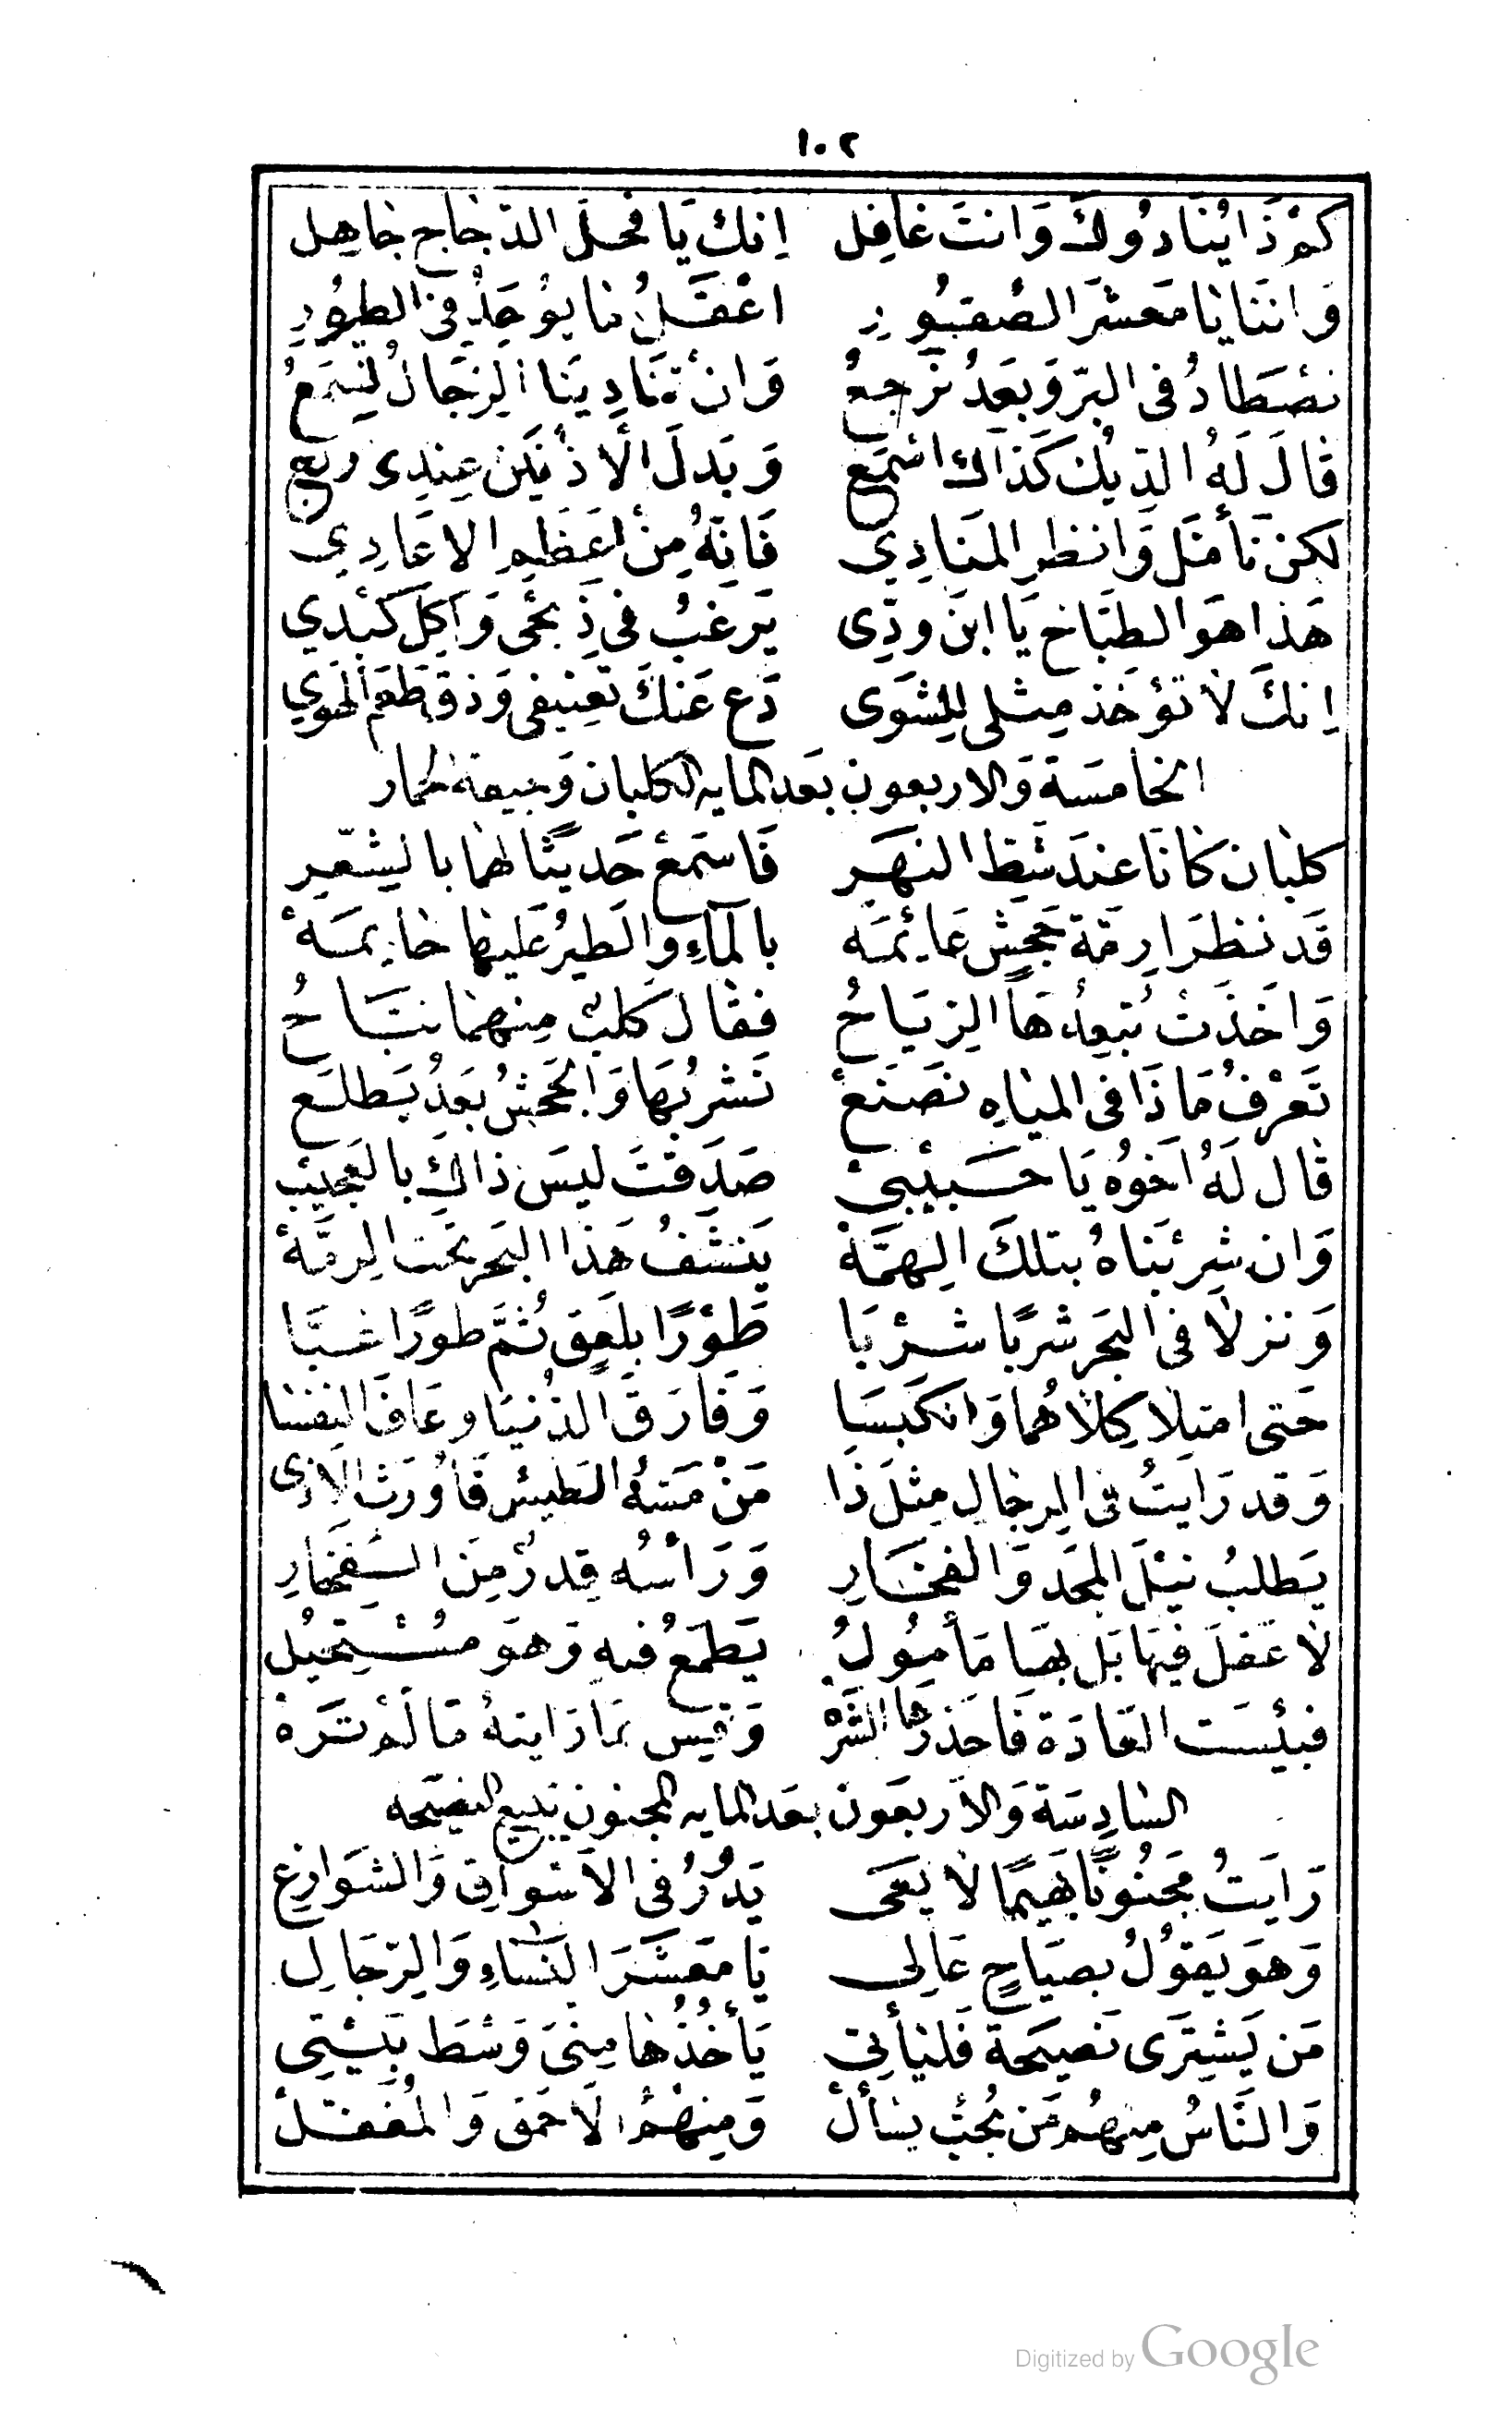 ١٠٢
كمْ ذَا يُنَادُوكَ وَانتَ غافِل اِنكَ يَا فحلَ الدّجاج جاهِل
وَاننَا يا مَعشرَ الصُقبُورِ اعْقَلُ ما يوُجَدُ فى الطيُورِ
نصْطَادُ فى البرّ وَبعَدُ نرَجعُ وَانْ تنَادِينَا الرجَالُ نسمَعُ
قالَ لَهُ الديكُ كَذَاكَ اسْمَع وَبَدلَ الأذنَين عِندِى اربَع
لكنْ تأمَل وَانظرِ المنَادِي فَانهُ مِنْ اعَظمِ الاعَادِي
هَذا هوَ الطبَاخ يَا ابنَ ودِّى يَرغبُ فى ذِبحى وَاكل كبْدي
اِنكَ لا تؤخَذ مِثلى للِشوَى دَع عَنكَ تعنيفى وَذق طَعم الهوَي
الخامسَة وَالاربعون بعَد المايه الكلبان وَجيفة الحمار
كلبان كانَا عندَ شَطّ النهَر فَاسمَعْ حَديثًا لهما بالشعّر
قَد نظرَا رِمّة جَحشٍ عَائمَه بالمآءِ وَالطيرُ عَليهَا حايمَهْ
وَاخَذتْ تُبعدُهَا الريَاحُ فقالَ كلبٌ منهما نبّاحُ
تَعْرفُ مَاذَا فى المياهِ نصَنَعْ نَشربُهَا وَالجَحشُ بَعَدُ يَطلَع
قال لَهُ اخَوُه يَا حَبيْبىْ صَدَقتَ ليسَ ذاكَ بالعَجيْبِ
وَان شرِبْنَاهُ بتلكَ الهمَّهْ يَنشَفُ هَذا البحَر تحَت الرمَّهْ
وَنزلا فى البحَر شربًا شرْبَا طَوْرًا بلَعقٍ ثمَّ طورًا عَبَّا
حَتى امتلا كِلاهُما وَانكبَسَا وَفَارَقَ الدُنيَا وعَافَ النفسَا
وَقد رَايتُ فى الرجال مِثلَ ذَا مَنْ مَسَّهُ الطَيش فَاوُرَث الاَذى
يَطلبُ نيْلَ المجَد وَالفخَارِ وَرَأسُه قِدرٌ مِنَ الفخَارِ
لا عَقلَ فيهَا بَل بهَا مَأمُولُ يَطمَعُ فيهِ وَهوَ مُسْتحيُل
فبئسَت العَادَة فَاحذرهَا الشَرَهْ وَقيِس بمَا رَايتَهُ مَا لَمْ تَرَهْ
السادِسَة وَالأربعَون بعَد المايه المجنون يبَيع النصيحَه
رَايَتُ مَجنُونًا بَهيمًا لا يَعَى يَدُورُ فى الاسَواقِ وَالشوَارعِ
وَهوَ يَقولُ بصيَاحٍ عَالِى يَا مَعشَرَ النسَاءِ وَالرّجَالِ
مَن يَشترَى نَصيحَة فَليأتِى يَأخُذُها مِنىَ وَسَط بَيْتِى
وَالنَاسُ مِنهُم مَن يُجبْ يسألْ وَمِنهُمُ الاَحمَق وَالمُغَفلْ
Digitized by Google